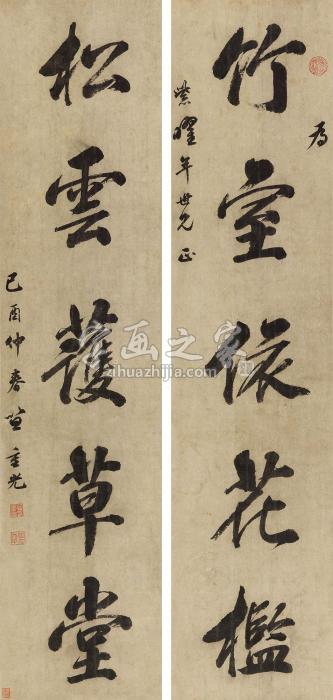 为
竹室依花檻
紫曜年世兄正
松雲護草堂
己酉仲春笪重光
书画之家
zihuazhijia.com